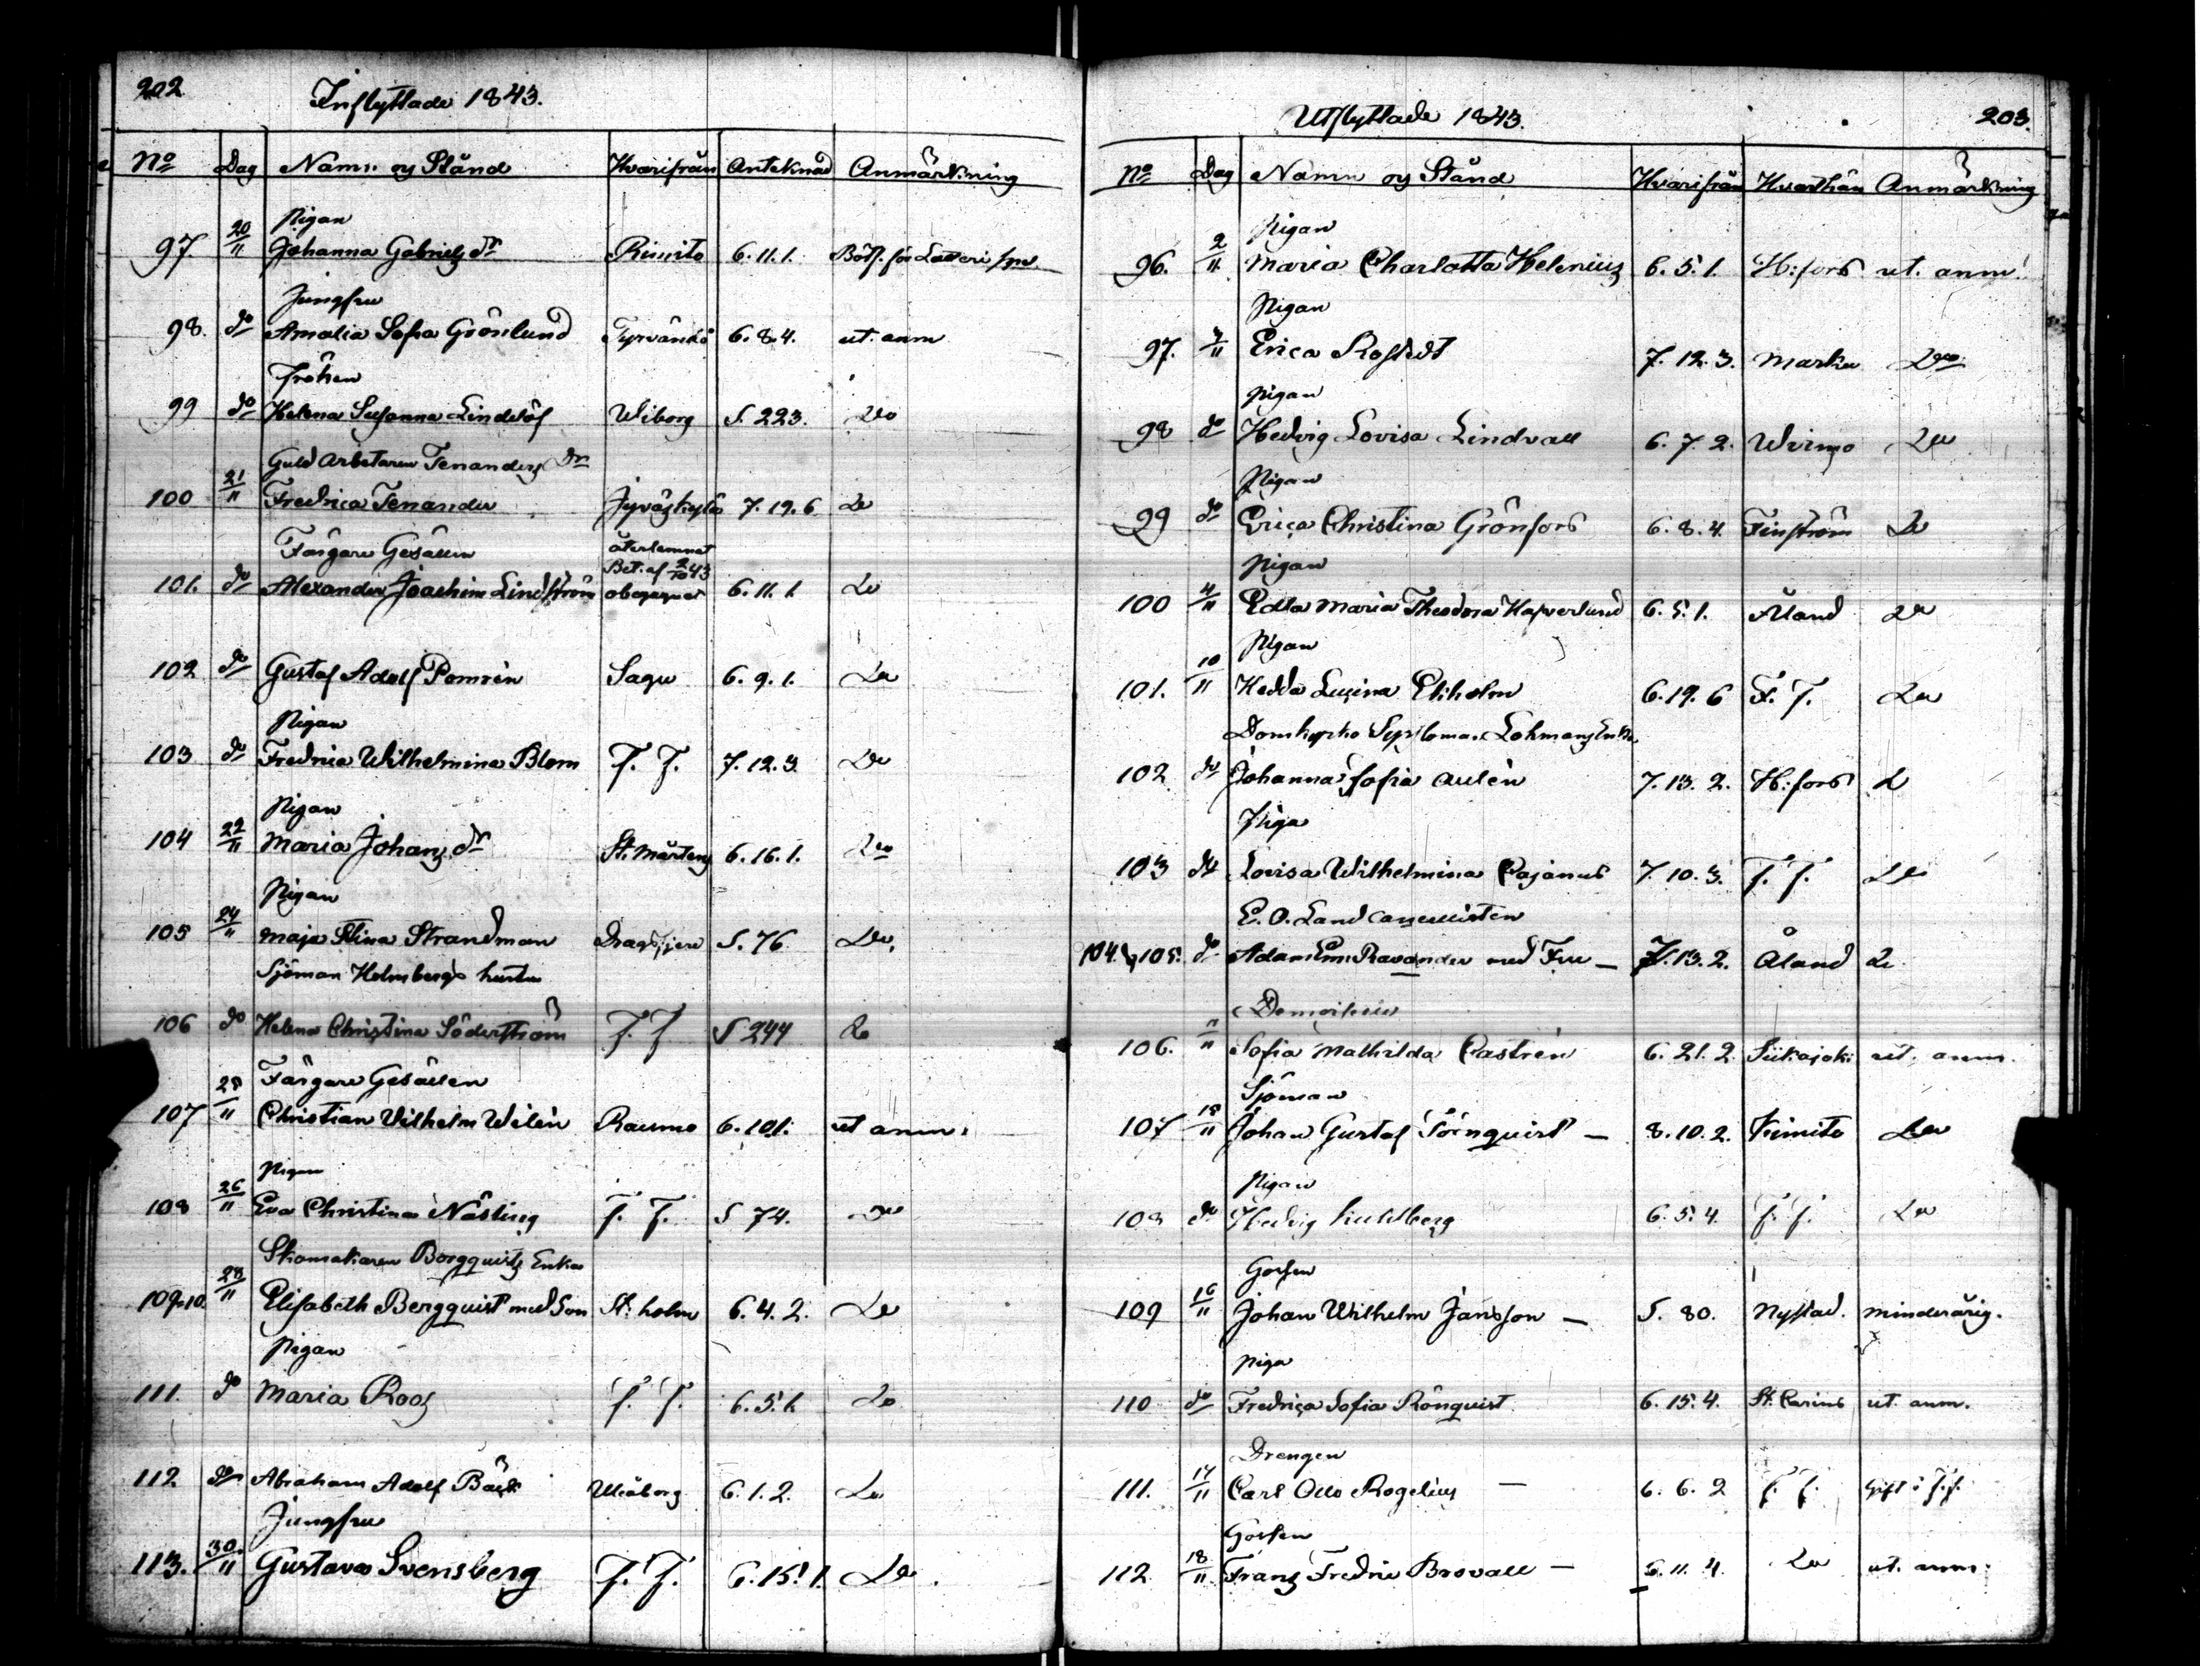 202
Inflyttade 1843.
No Dag Namn og Stånd Hvarifrån Anteknad Anmärkning
Pigan
97. 20/11 Johanna Gabrielsdr Rimito 6.11.1.
Jungfru
98. do Amalia Sofia Grönlund Tyrvändö 6.8.4. ut. anm
Fröken
99 do Helena Susanna Lindelöf Wiborg S. 223. Do
Guld Arbetaren Tenanders Dr
100 21/11 Fredrica Tenander Jyväskylä 7.19.6 Do
Färgare Gesällen återlemnat
Bet. af 2/10 43
101. do Alexander Joachim Lindström obegagnat 6.11.1 Do
102 do Gustaf Adolf Pomrén Sagu 6.9.1. Do
Pigan
103 do Fredrica Wilhelmina Blom f. f. 7.12.3. Do
Pigan
104 22/11 Maria Johansdr St. Mårtens 6.16.1. Do
Pigan
105 24/11 Maja Stina Strandman Dragsfjerd S. 76 Do
Sjöman Holmbergs hustru
106 do Helena Christina Söderström f. f S 244 Do
Färgare Gesällen
107 25/11 Christian Vilhelm Wilén Raumo 6.10.1. ut anm.
Pigan
108 26/11 Eva Christina Näsling f. f. S 74. Do
Skomakaren Borgquists Enka
109.10. 28/11 Elisabeth Bergquist med Son St:holm 6.4.2. Do
Pigan
111. do Maria Roos f. f. 6.5.1. Do
112 do Abraham Adolf Bäck Uleåborg 6.1.2. Do
Jungfru
113. 30/11 Gustava Svensberg f. f. 6.15.1. Do
Utflyttade 1843. 203.
No Dag Namn og Stånd Hvarifrån Hvarthän Anmärkning
Pigan
96. 2/11 Maria Charlotta Helenius 6.5.1. H:fors ut. anm.
Pigan
97. 3/11 Erica Rosstedt 7.12.3. Masku Do
Pigan
98 do Hedvig Lovisa Lindvall 6.7.2. Do
Pigan
99 do Erica Christina Grönfors 6.8.4. Finström Do
Pigan
100 4/11 Edla Maria Theodora Hafverlund 6.5.1. Åland Do
Pigan
101. 10/11 Hedda Ekholm 6.19.6 f. f. Do
Domkyrko Sysloman Lohmans
102 do Johanna Sofia Aulén 7.13.2. H:fors Do
Piga
103 do Lovisa Wilhelmina Cajanus 7.10.3. f. f. Do
E. O. Landcancellisten
104. & 105. do Adam Em. Ravander med Fru — 7.13.2. Åland Do
Demoiselle
106. 11/11 Sofia Mathilda Castrén 6.21.2. Siikajoki ut. anm.
Sjöman
107 15/11 Johan Gustaf Törnquist — 8.10.2. Kimito Do
Pigan
108 do Hedvig Kuhlberg 6.5.4. f. f. Do
Gossen
109 16/11 Johan Wilhelm Jansson — S. 80. Nystad. minderårig.
Piga
110 do Fredrica Sofia Rönquist 6.15.4. St. Carins ut. anm.
Drengen
111. 17/11 Carl Otto Rogelius — 6.6.2 f. f. Gift i f.f.
Gossen
112 18/11 Frans Fredric Brovall — 6.11.4. Do ut. anm.